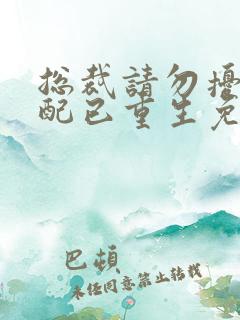 总裁請勿擾
配已重生免
巴頓
未经同意禁止转载